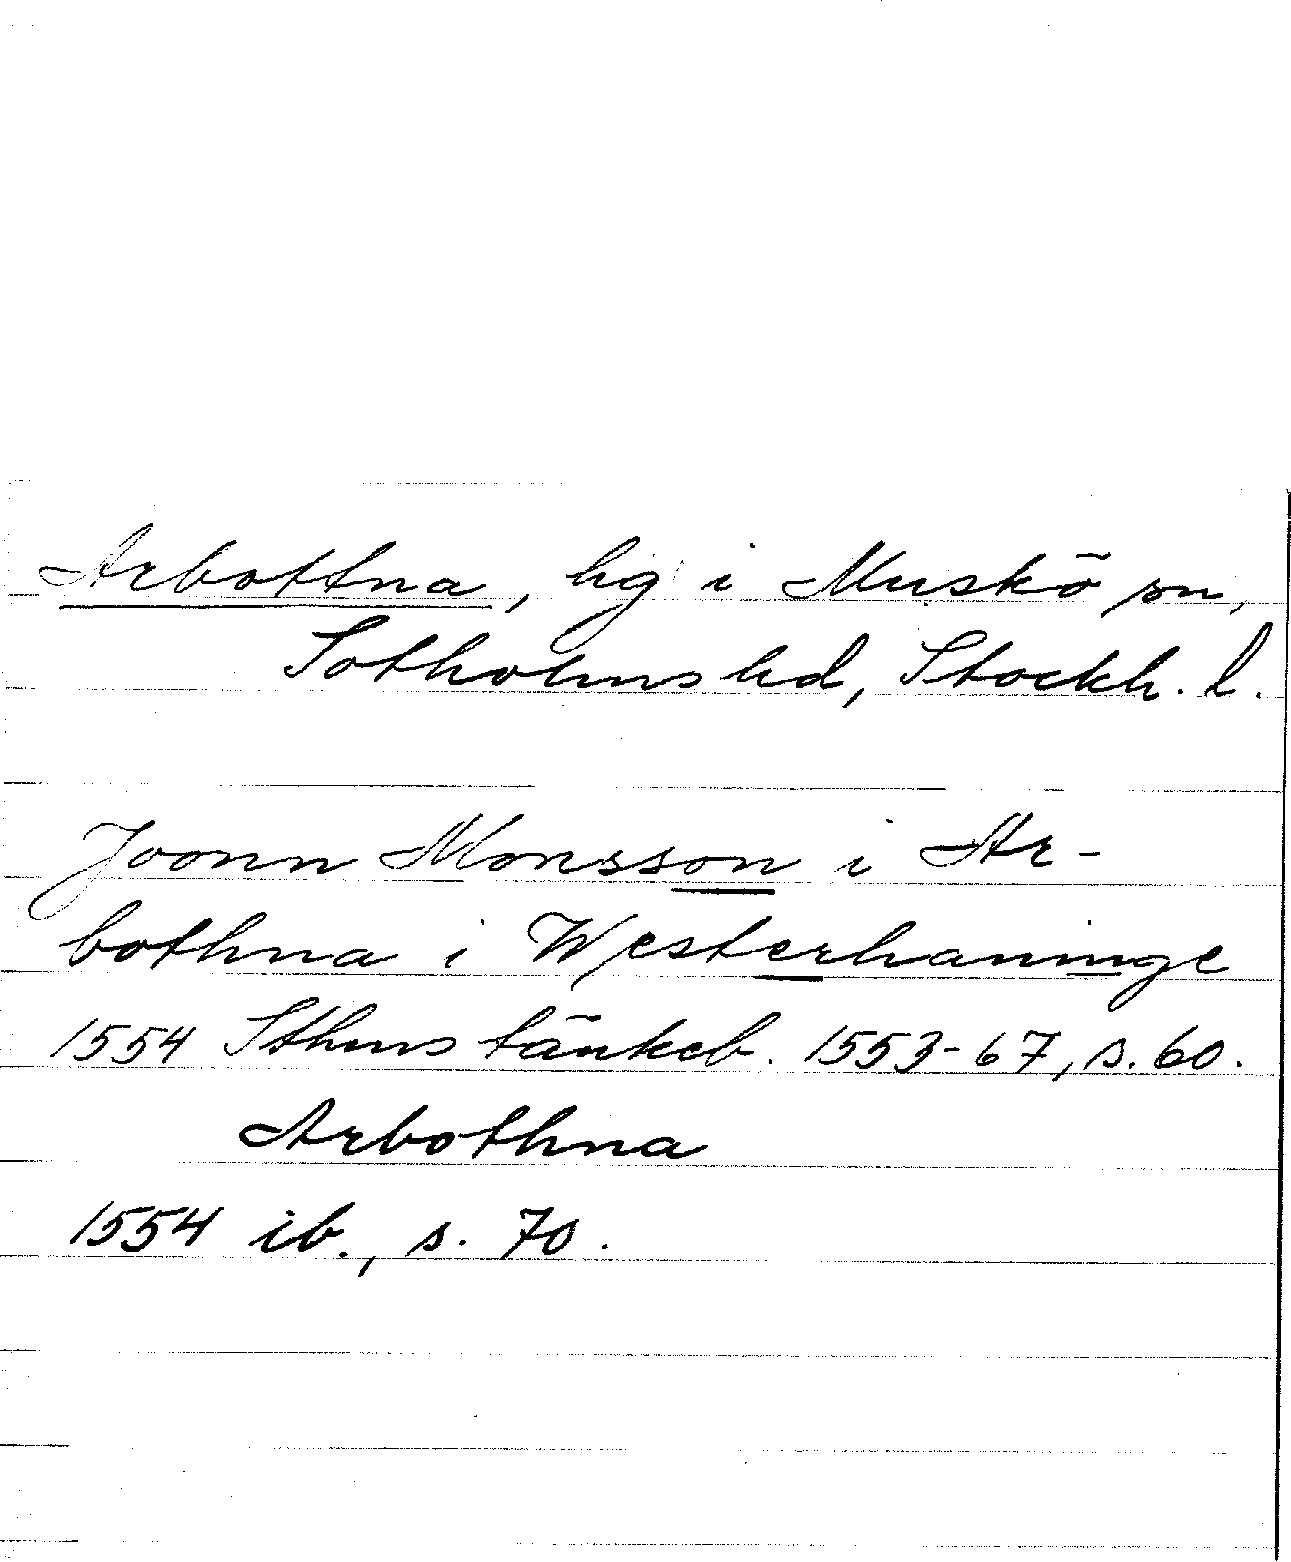 Arbottna, hg i Muskö sn,
Sotholms hd, Stockh. l.
Joonn Monsson i Ar-
bothna i Westerhaninge
1554 Sthms tänkeb. 1553-67, s. 60.
Arbothna
1554 ib., s. 70.